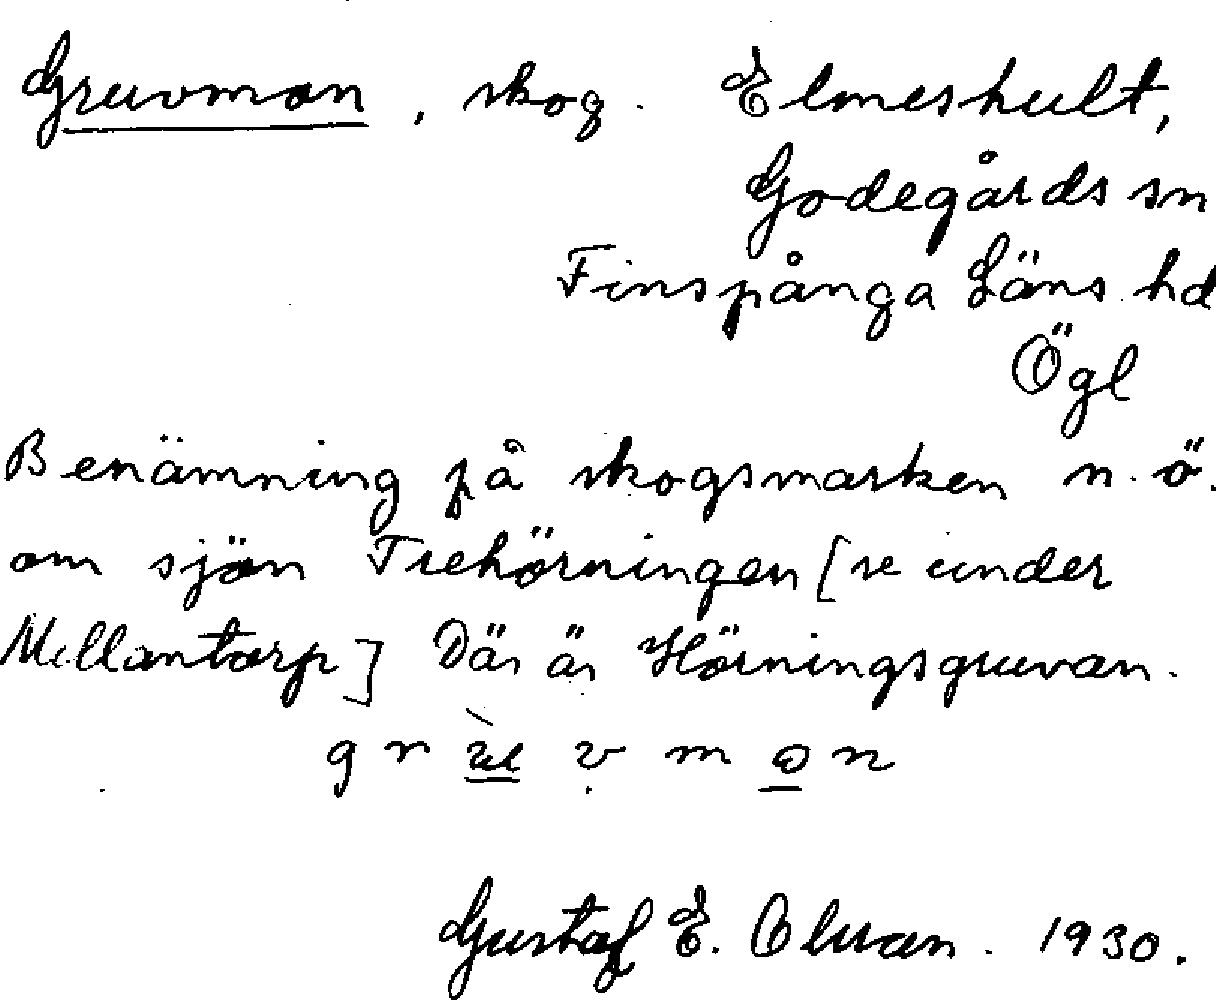 Gruvmon, skog. Elmeshult,
Godegårds sn
Finspånga Läns hd
Ögl
Benämning på skogsmarken n.ö.
om sjön Trehörningen [se under
Mellantorp] Där är Hörningsgruvan.
gr<u>ù</u>vm<u>o</u>n
Gustaf E. Olsson. 1930.